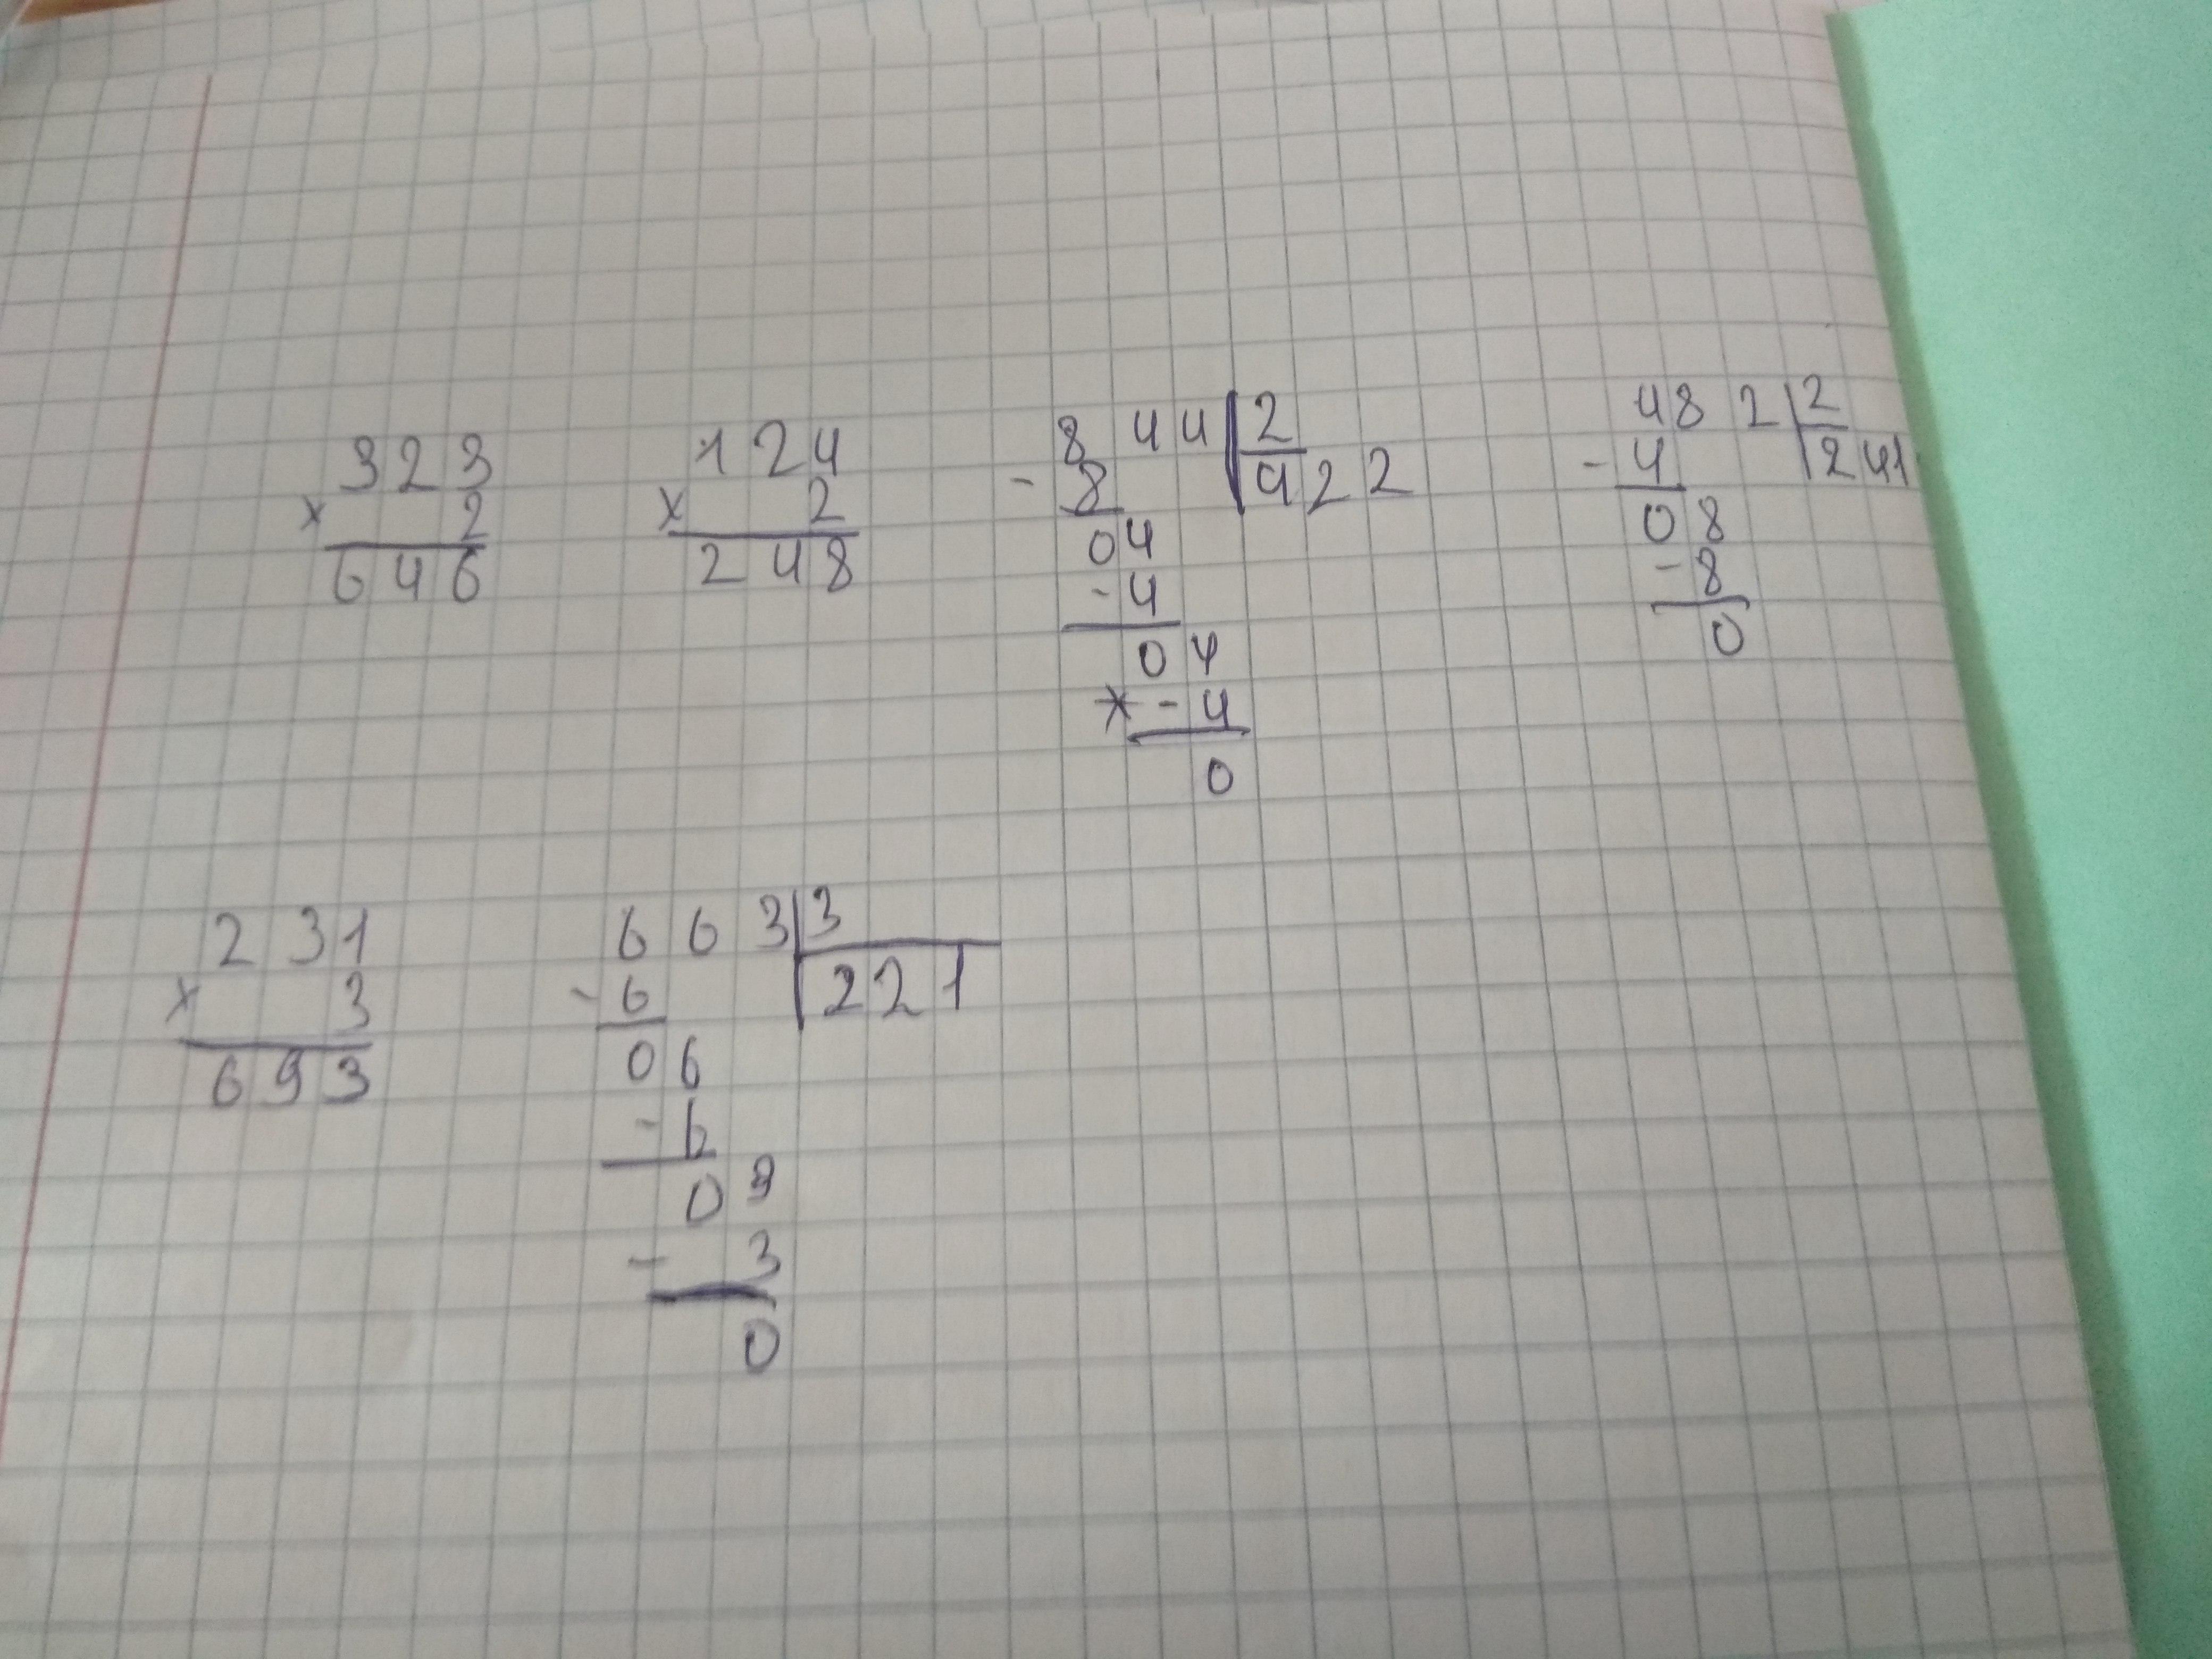 323
× 2
646
124
× 2
248
844 2
- 8 422
04
- 4
04
* - 4
0
482 2
- 4 241
08
- 8
0
231
× 3
693
663 3
- 6 221
06
- 6
03
- 3
0